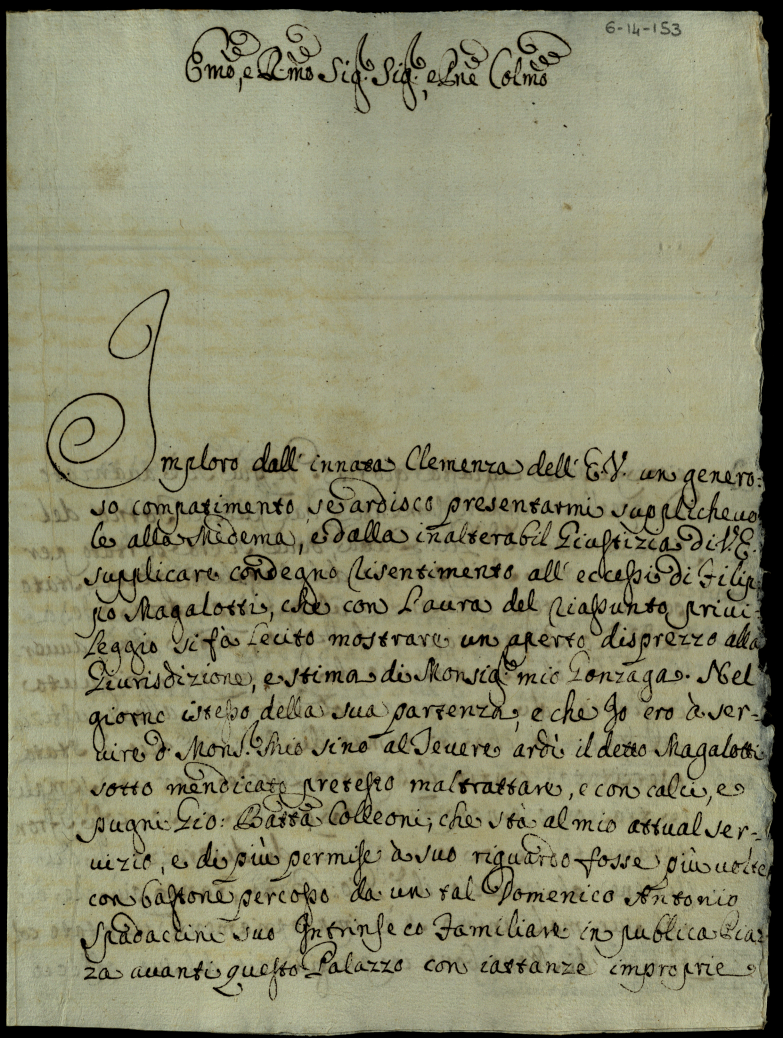 6-14-153
Emo, e Rmo Sig.r Sig.r, e Pne Colmo
Imploro dall' innata Clemenza dell' E.V. un genero:
so compatimento, se ardisco presentarmi supplichevo
le alla Midema, e dalla inalterabil Giustizia di V.E.
supplicare condegno risentimento all' eccessi di Filip
po Magalotti, che con l'aura del riassunto privi:
leggio si fà lecito mostrare un aperto disprezzo alla
Giurisdizione, e stima di Monsig.r mio Gonzaga. Nel
giorno istesso della sua partenza, e che Io ero à ser-
vire d.o Mons.r Mio sino al Tevere ardì il detto Magalotti
sotto mendicato pretesto maltrattare, e con calci, e
pugni Gio: Batta Colleoni, che stà al mio attual ser-
vizio, e di più permise à suo riguardo fosse più volte
con bastone percosso da un tal Domenico Antonio
Spadaccini suo Intrinseco Familiare in publica Piaz-
za avanti questo Palazzo con iattanze improprie